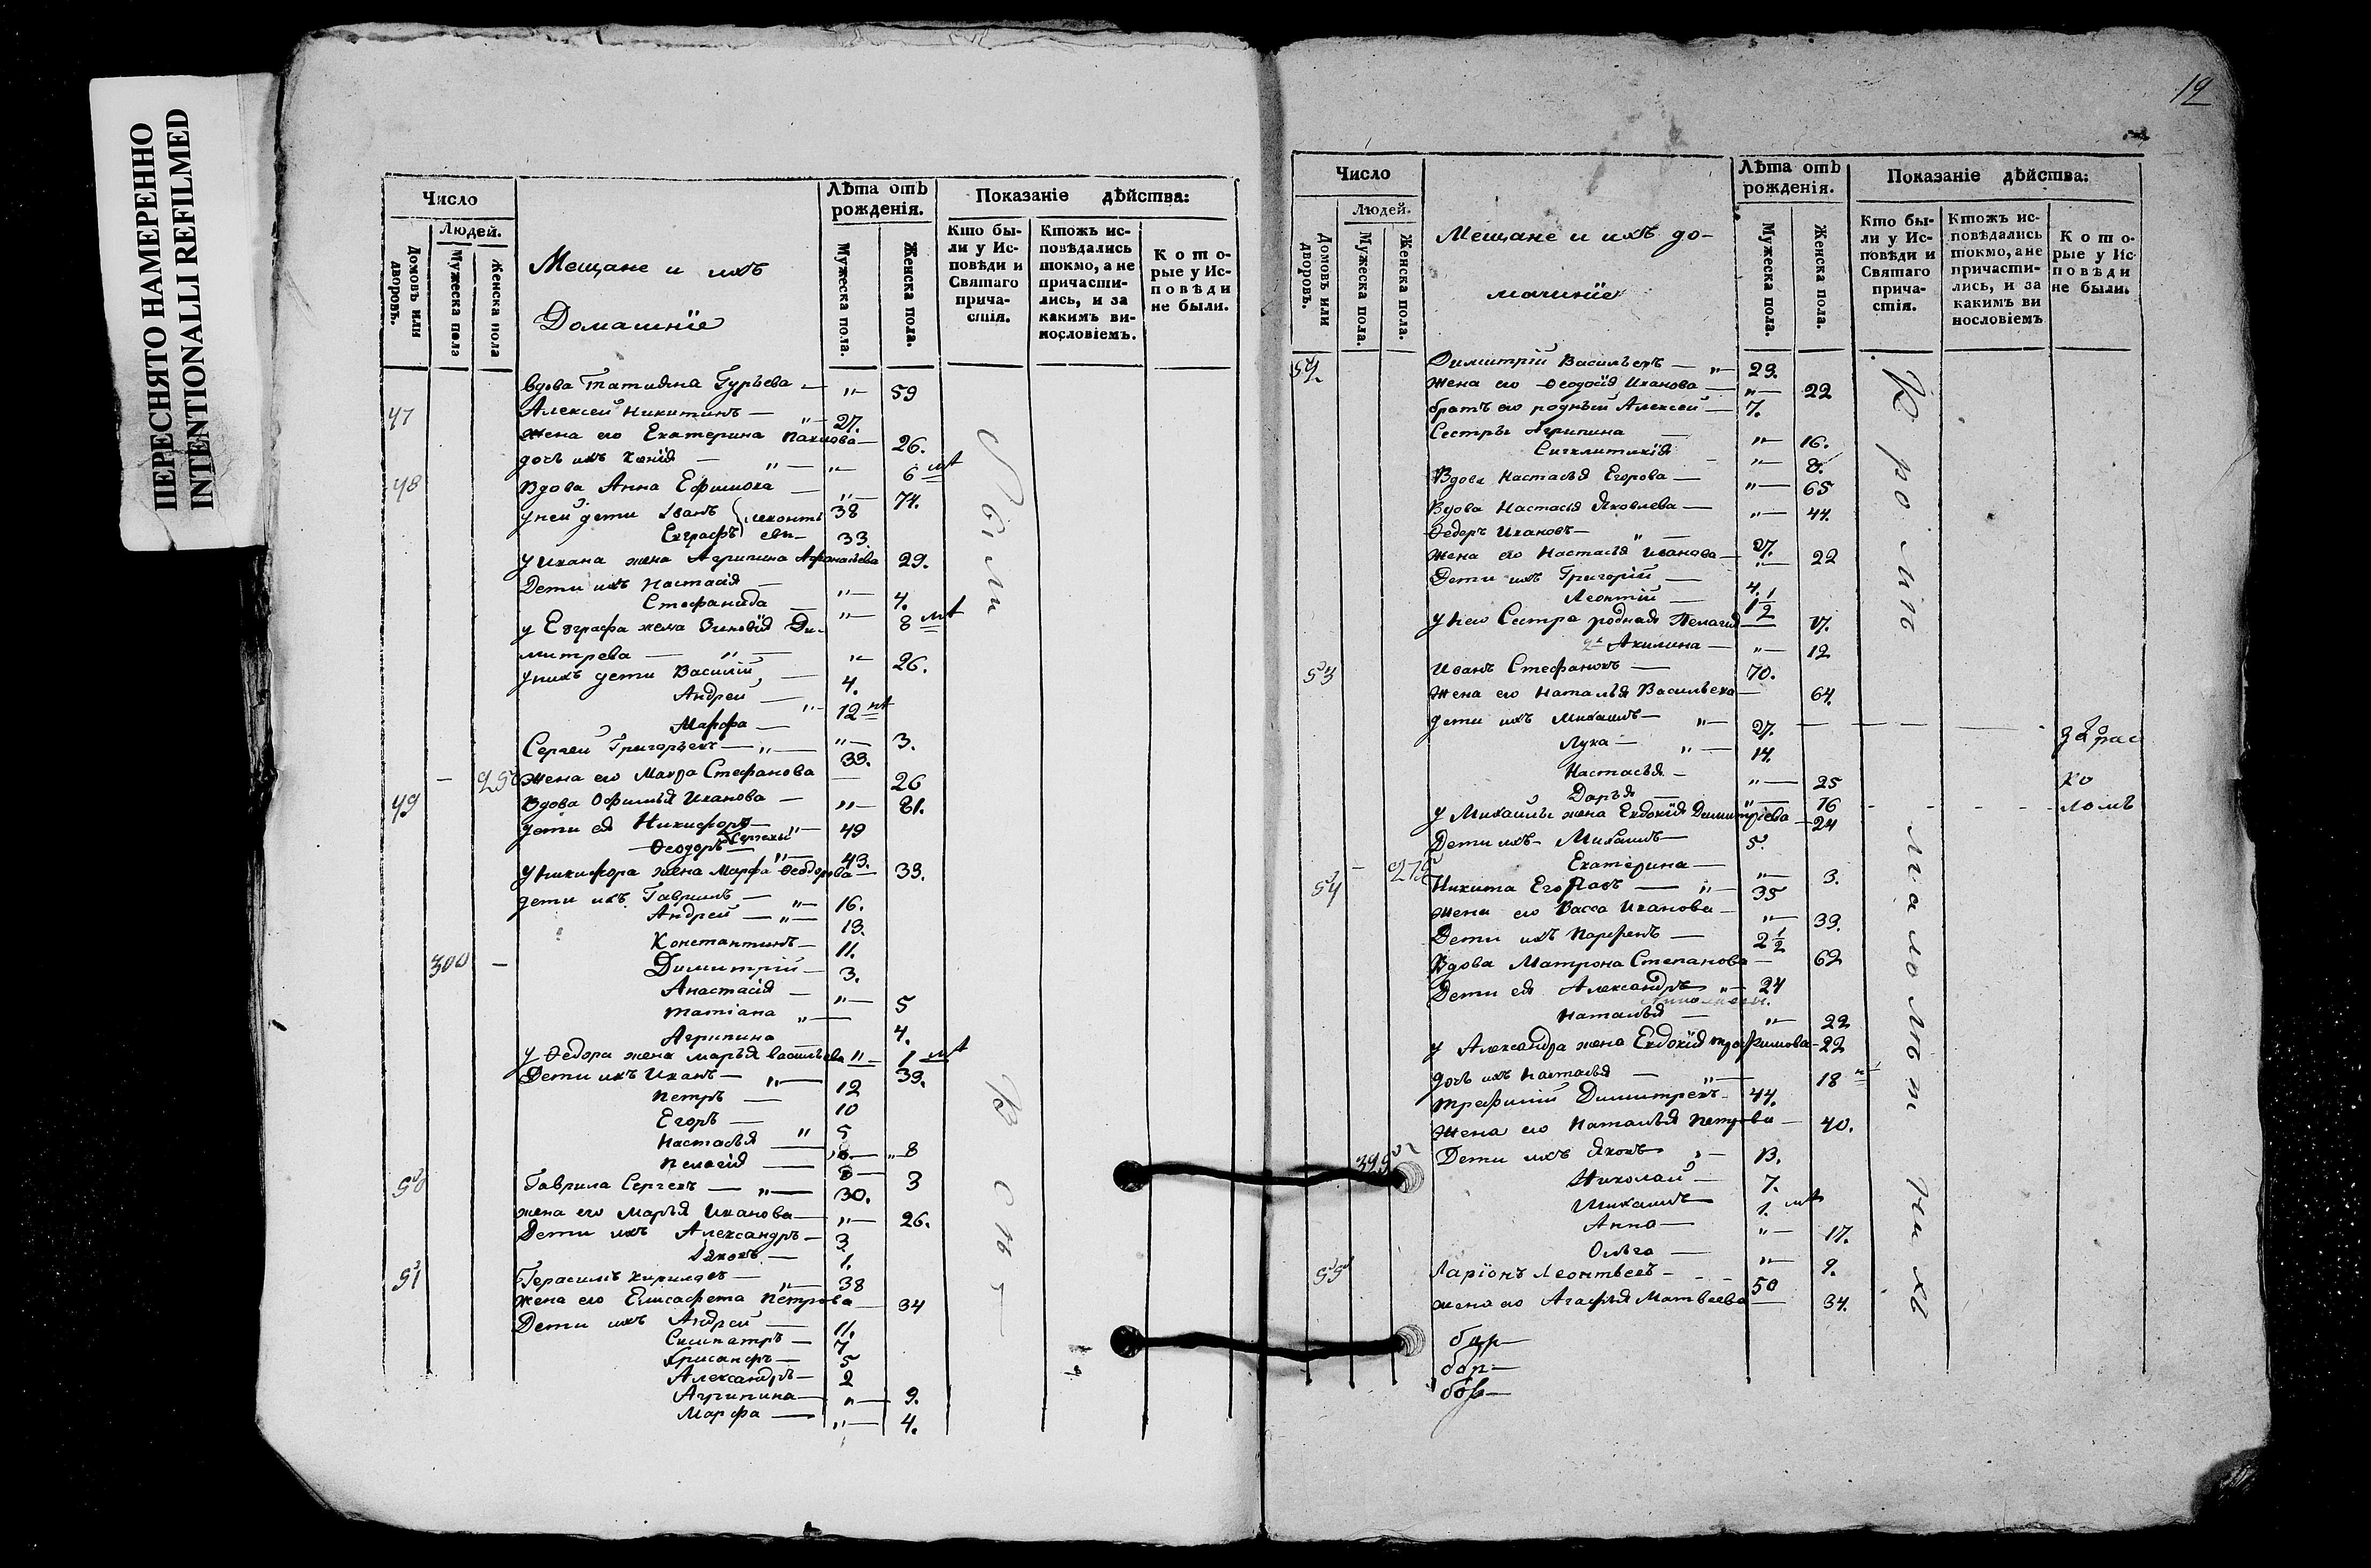 ПЕРЕСНЯТО НАМЕРЕННО
INTENTIONALLI REFILMED
Число
Людей.
Домовъ или дворовъ.
Мужеска пола
Женска пола
Мещане и ихъ
Домашніе
Лѣта отъ рожденія.
Мужеска пола.
Женска пола.
Показаніе дѣйства:
Кто были у Исповѣди и Святаго причастія.
Ктожъ исповѣдались токмо, а не причастились, и за какимъ винословіемъ.
Которые у Исповѣди не были.
вдова Татияна Гурьева — "— 59
47 Алексей Никитинъ — "— 27.
жена его Екатерина — 26.
дочь ихъ — "— "— 6 мѣ
48 Вдова Анна Ефимова — "— 74.
у ней дети Иванъ 38
Евграфъ — 33.
у Ивана жена Агрипина Афонасьева 29.
Дети ихъ Настасія — "— 4.
Стефанида — "— 8 мѣ
у Евграфа жена Зиновія Ди-
митрева — "— "— 26.
у нихъ дети Василій — 4.
Андрей — "— 12 мѣ
Марфа — "— 3.
Сергей Григорьевъ — "— 33.
— 250 Жена его Мавра Стефанова — 26
49 Вдова Офимья Иванова — "— 81.
дети ея Никифоръ — "— 49
Феодоръ Сергеевы "— 43.
у Никифора жена Марфа Феодорова — 33.
дети ихъ Гаврилъ — "— 16.
Андрей — "— 13.
Константинъ — 11.
300 — Димитрій — 3.
Анастасія — "— 5
Татіана "— 4.
Агрипина — 1 мѣ
у Федора жена Марья Васильева "— 39.
Дети ихъ Иванъ — "— 12
Петръ — 10
Егоръ — 5
Настасья "— 8
Пелагія — 3
50 Гаврила Сергеевъ — "— 30.
жена его Марья Иванова — "— 26.
Дети ихъ Александръ — 3
Яковъ — 1.
51 Герасимъ Кириловъ — "— 38
жена его Елисафета Петрова — 34
Дети ихъ Андрей — 11.
7
Хрисанфъ — 5
Александръ — 2
Агрипина — "— 9.
Марфа — "— 4.
Всѣ
12
Число
Людей.
Домовъ или дворовъ.
Мужеска пола.
Женска пола.
Мещане и ихъ до-
машніе
Лѣта отъ рожденія.
Мужеска пола.
Женска пола.
Показаніе дѣйства:
Кто были у Исповѣди и Святаго причастія.
Ктожъ исповѣдались токмо, а не причастились, и за какимъ винословіемъ
Которые у Исповѣди не были.
52 Димитрій Васильевъ — "— 23.
жена его Феодосія Иванова — "— 22
братъ его родный Алексей — 7.
Сестры Агрипина — "— 16.
Сигклитикія — "— 8.
Вдова Настасья Егорова — "— 65
Вдова Настасія Яковлева — "— 44.
Федоръ Ивановъ — "— 27.
жена его Настасья Иванова — "— 22
Дети ихъ Григорій — 4.
Леонтій — 1 1/2
у него Сестра родная Пелагия — 17.
2я Акилина — "— 12
53 Иванъ Стефановъ — 70.
жена его Наталья Васильева — 64.
дети ихъ Михаилъ — "— 27. — — — — за рас
Лука — "— 14.
Настасья — "— 25 ко
Дарья — "— 16 — — — — ломъ
у Михайлы жена Евдокія Димитріева — 24
Дети ихъ Михаилъ — 5.
— 275 Екатерина — "— 3.
54 Никита — "— 35
Жена его Васса Иванова — "— 33.
Дети ихъ Парфенъ — 2 1/2
Вдова Матрона Степанова — 62
Дети ея Александръ "— 24
Наталья — "— 22
у Александра жена Евдокія Трофимова — 22
дочь ихъ Настасья — "— 18 н
Трофимъ Димитревъ — 44.
Жена его Наталья Петрова — 40.
325 Дети ихъ Яковъ "— 13.
Николай — 7.
Михаилъ — 1. мѣ
Анна — "— 17.
Ольга — "— 9.
55 Ларіонъ Леонтьевъ — 50
жена его Агафья Матвеева — 34.
Кромѣ
малолѣт
нихъ